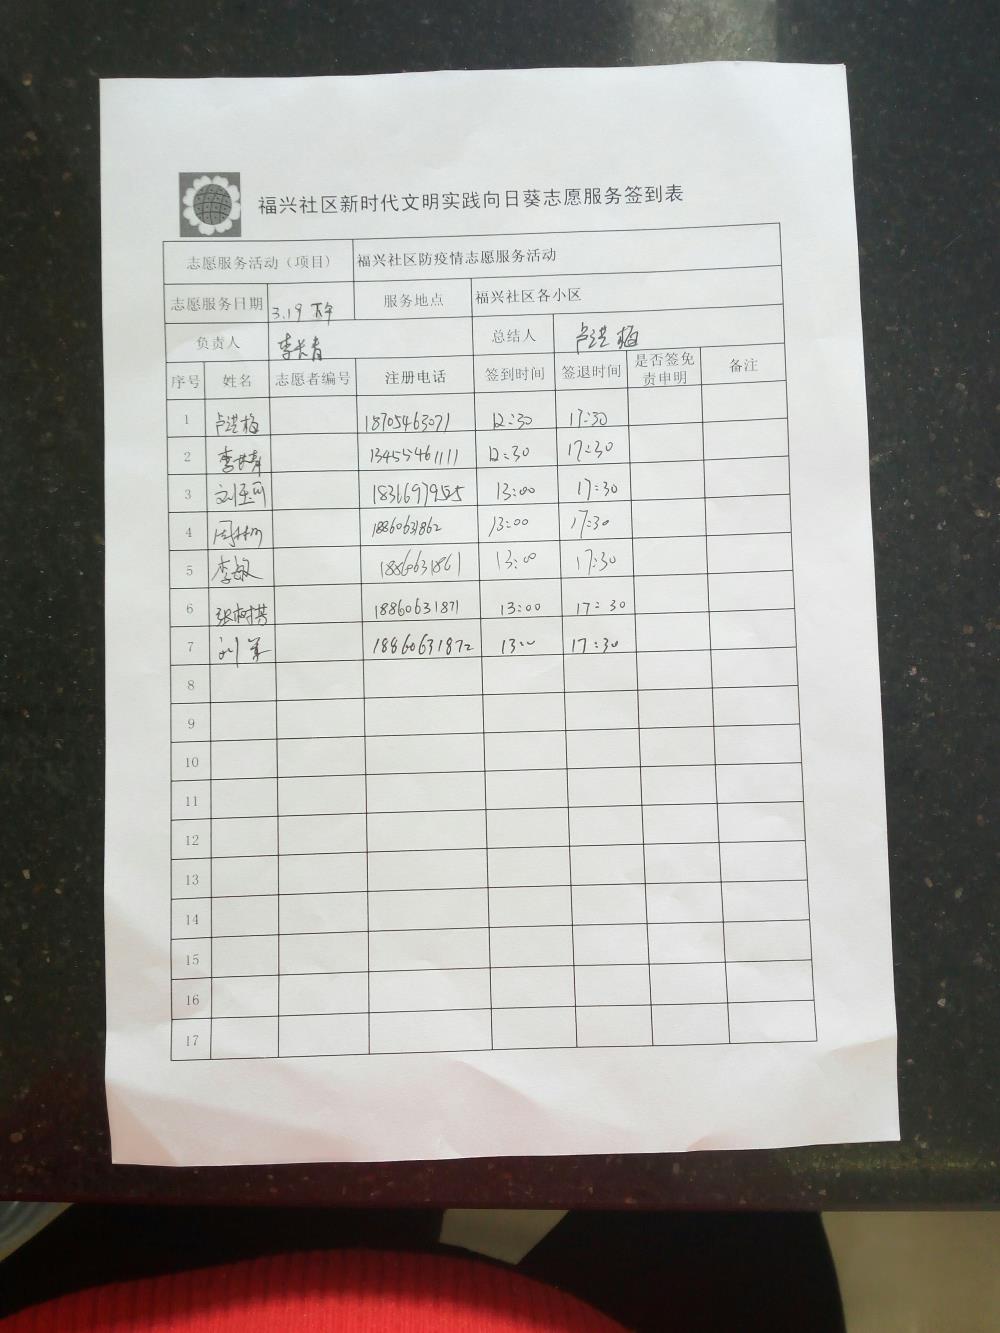 福兴社区新时代文明实践向日葵志愿服务签到表
志愿服务活动（项目） 福兴社区防疫情志愿服务活动
志愿服务日期 3.19 下午 服务地点 福兴社区各小区
负责人 李长青 总结人 卢洪梅
序号 姓名 志愿者编号 注册电话 签到时间 签退时间 是否签免责申明 备注
1 卢洪梅 18705463071 12:30 17:30
2 李长青 13455461111 12:30 17:30
3 18366979525 13:00 17:30
4 18860631862 13:00 17:30
5 李敏 18860631861 13:00 17:30
6 张树芳 18860631871 13:00 17:30
7 刘军 18860631872 13:00 17:30
8
9
10
11
12
13
14
15
16
17